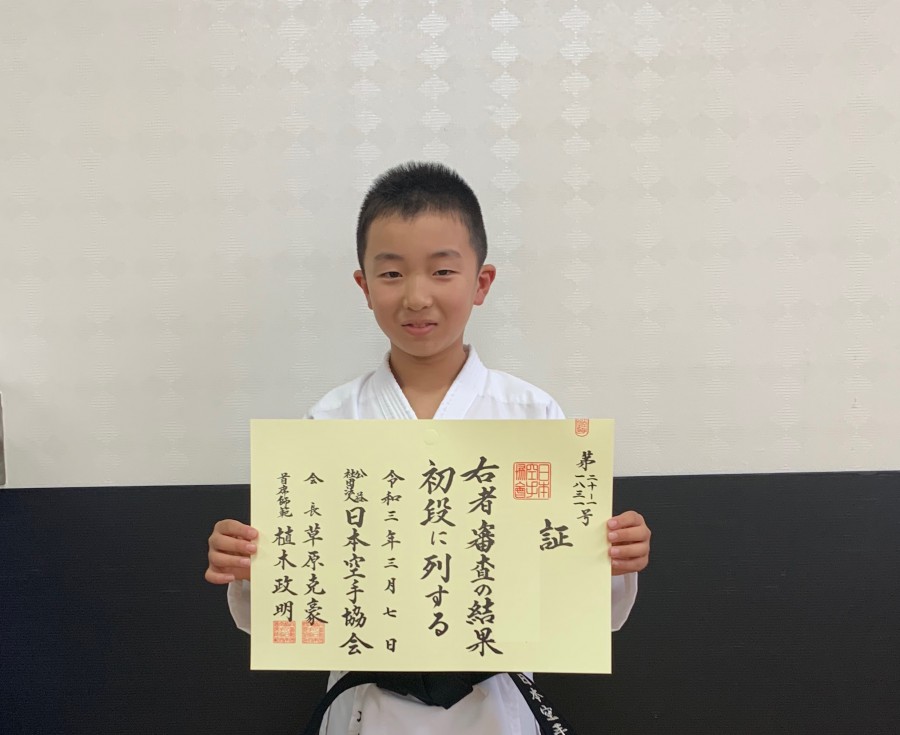 第二十一一八三一号
証
日本空手協會
右者審査の結果
初段に列する
令和三年三月七日
公益社団法人日本空手協会
会長草原克豪
首席師範植木政明
日本空手